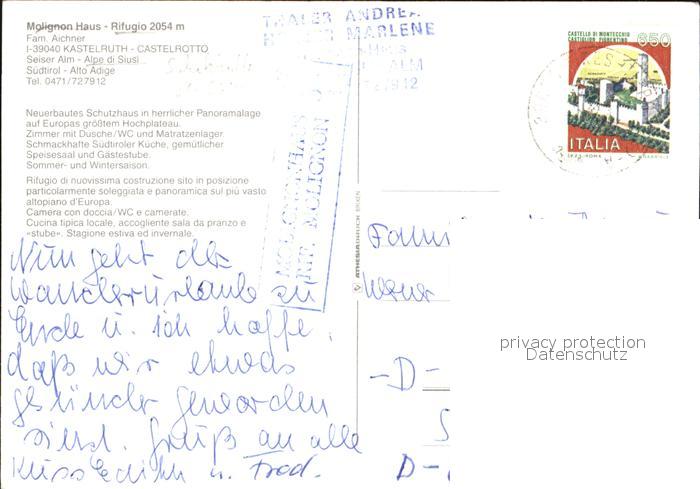 Molignon Haus - Rifugio 2054 m
Fam. Aichner
I-39040 KASTELRUTH - CASTELROTTO
Seiser Alm - Alpe di Siusi
Südtirol - Alto Adige
Tel. 0471/727912
Neuerbautes Schutzhaus in herrlicher Panoramalage
auf Europas größtem Hochplateau.
Zimmer mit Dusche/WC und Matratzenlager.
Schmackhafte Südtiroler Küche, gemütlicher
Speisesaal und Gästestube.
Sommer- und Wintersaison.
Rifugio di nuovissima costruzione sito in posizione
particolarmente soleggiata e panoramica sul più vasto
altopiano d'Europa.
Camera con doccia/WC e camerate.
Cucina tipica locale, accogliente sala da pranzo e
«stube». Stagione estiva ed invernale.
Nun geht der
Wanderurlaub zu
Ende u. ich hoffe,
daß wir etwas
gesünder geworden
sind. Gruß an alle
u. Fred.
THALER ANDREA
MARLENE
ALM
727912
MOLIGNONHAUS
RIF. MOLIGNON
ATHESIADRUCK BRIXEN
CASTELLO DI MONTECCHIO
CASTIGLION FIORENTINO
650
ITALIA
I.P.Z.S. ROMA
Fami
Werner
-D-
S
D-
privacy protection
Datenschutz